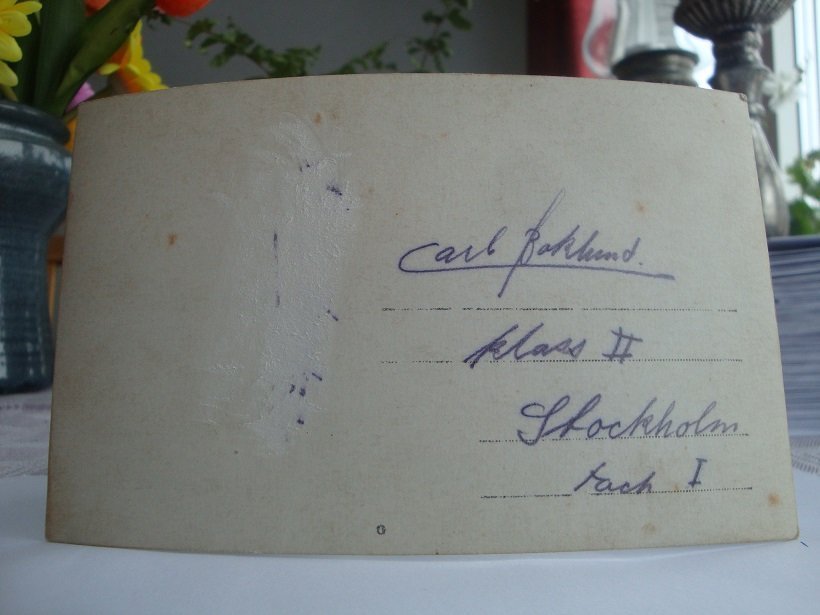 Carl Boklund.
klass II
Stockholm
Fach I